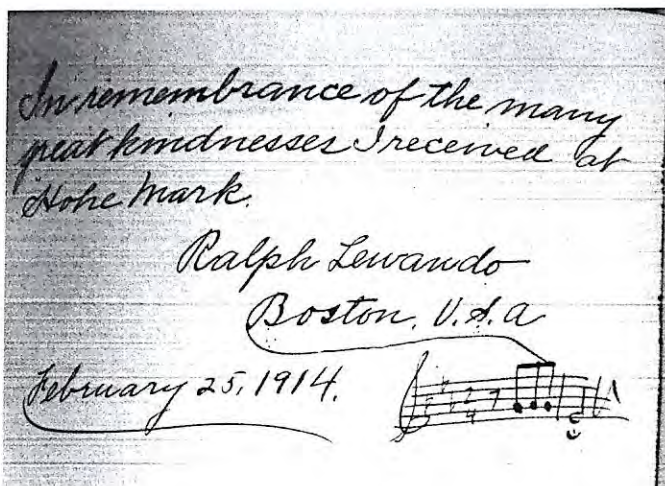 In remembrance of the many
great kindnesses I received at
Hohe Mark.
Ralph Lewando
Boston, U.S.A
February 25, 1914.